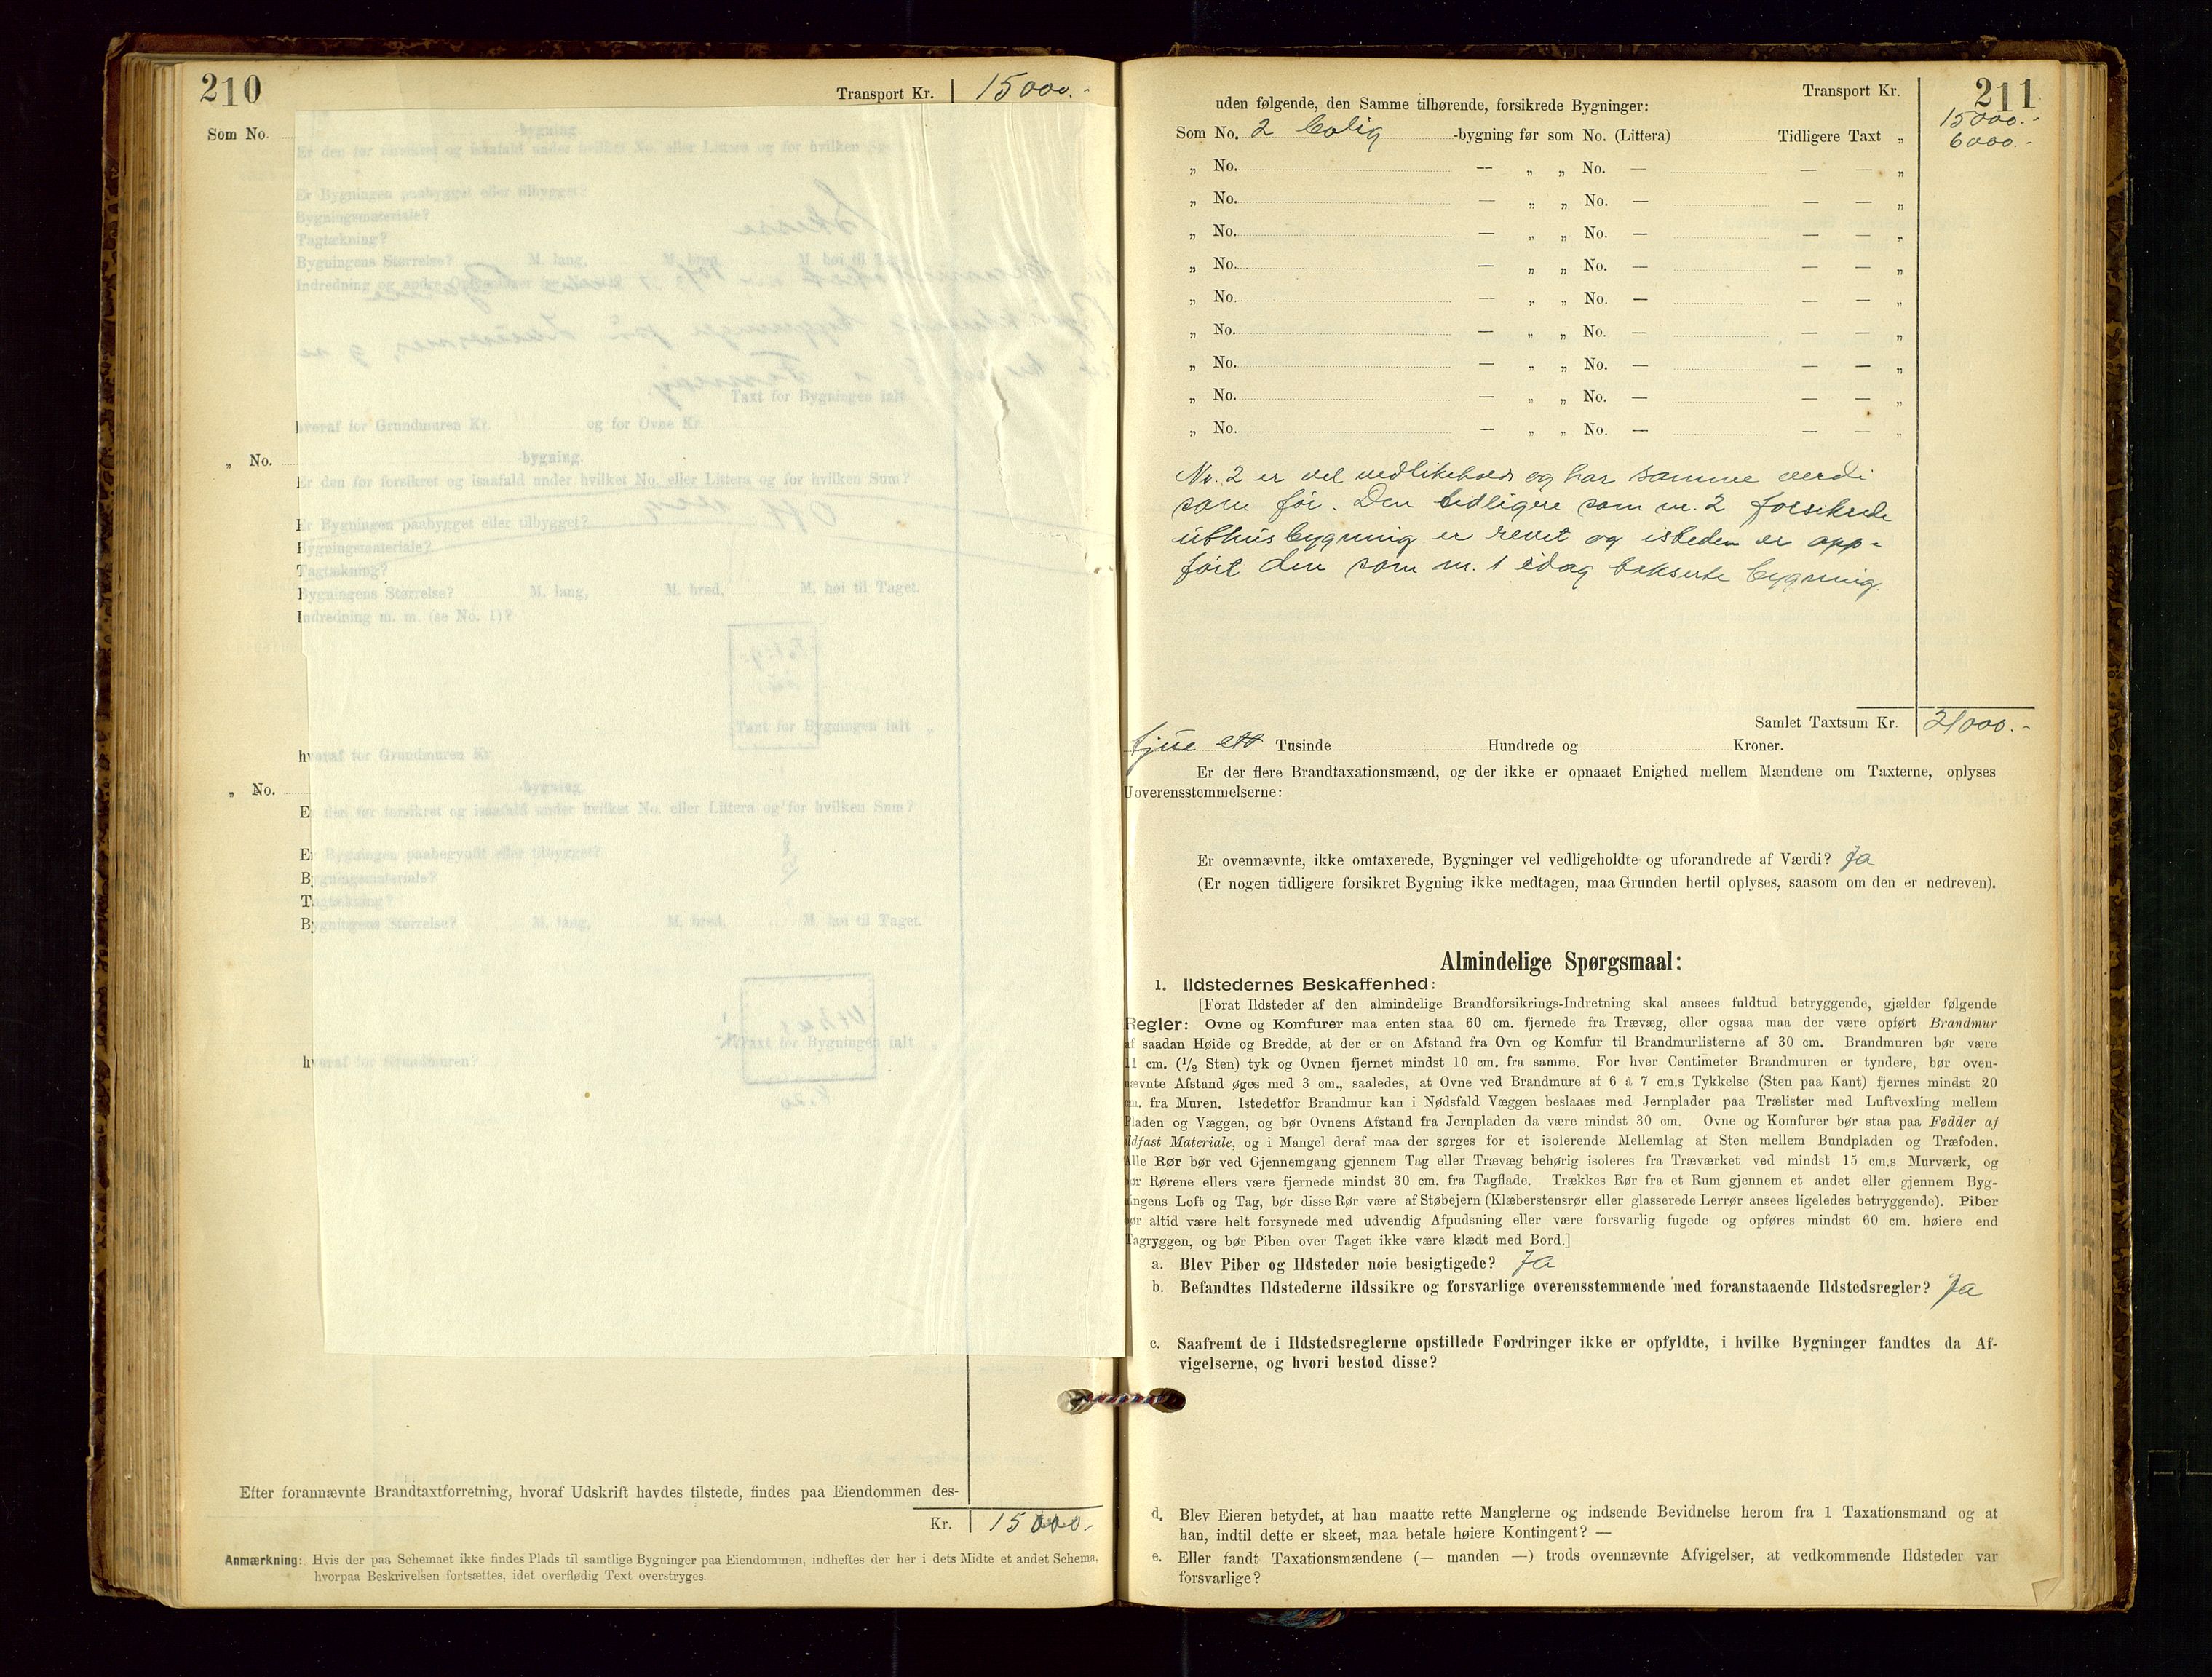 210
Transport Kr. 15000.-
Som No.
-bygning
Er den før forsikret og isaafald under hvilket No. eller Littera og for hvilken
Er Bygningen paabygget eller tilbygget?
Bygningsmateriale?
Tagtækning?
Bygningens Størrelse? M. lang, M. bred, M. høi til
Taxt for Bygningen ialt
hvoraf for Grundmuren Kr. og for Ovne Kr.
„ No. -bygning.
Er den før forsikret og isaafald under hvilket No. eller Littera og for hvilken Sum?
Er Bygningen paabygget eller tilbygget?
Bygningsmateriale?
Tagtækning?
Bygningens Størrelse? M. lang, M. bred, M. høi til Taget.
Indredning m. m. (se No. 1)?
Taxt for Bygningen ialt „
hvoraf for Grundmuren Kr.
„ No. -bygning.
Er den før forsikret og isaafald under hvilket No. eller Littera og for hvilken Sum?
Er Bygningen paabegyndt eller tilbygget?
Bygningsmateriale?
Tagtækning?
Bygningens Størrelse? M. lang, M. bred, M. høi til Taget.
Taxt for Bygningen ialt „
hvoraf for Grundmuren?
Efter forannævnte Brandtaxtforretning, hvoraf Udskrift havdes tilstede, findes paa Eiendommen des-
Kr. 15000.-
Anmærkning: Hvis der paa Schemaet ikke findes Plads til samtlige Bygninger paa Eiendommen, indheftes der her i dets Midte et andet Schema,
hvorpaa Beskrivelsen fortsættes, idet overflødig Text overstryges.
Transport Kr. 211
15000.-
uden følgende, den Samme tilhørende, forsikrede Bygninger:
Som No. 2 bolig -bygning før som No. (Littera) Tidligere Taxt „ 6000.-
„ No. — „ „ No. — — — „
„ No. — „ „ No. — — — „
„ No. — „ „ No. — — — „
„ No. — „ „ No. — — — „
„ No. — „ „ No. — — — „
„ No. — „ „ No. — — — „
„ No. — „ „ No. — — — „
„ No. — „ „ No. — — — „
„ No. — „ „ No. — — — „
Nr. 2 er vel vedlikeholdt og har samme verdi
som før. Den tidligere som nr. 2 forsikrede
uthusbygning er revet og isteden er opp-
ført den som nr. 1 idag takserte bygning.
Samlet Taxtsum Kr. 21000.-
tjue ett Tusinde Hundrede og Kroner.
Er der flere Brandtaxationsmænd, og der ikke er opnaaet Enighed mellem Mændene om Taxterne, oplyses
Uoverensstemmelserne:
Er ovennævnte, ikke omtaxerede, Bygninger vel vedligeholdte og uforandrede af Værdi? Ja
(Er nogen tidligere forsikret Bygning ikke medtagen, maa Grunden hertil oplyses, saasom om den er nedreven).
Almindelige Spørgsmaal:
1. Ildstedernes Beskaffenhed:
[Forat Ildsteder af den almindelige Brandforsikrings-Indretning skal ansees fuldtud betryggende, gjælder følgende
Regler: Ovne og Komfurer maa enten staa 60 cm. fjernede fra Trævæg, eller ogsaa maa der være opført Brandmur
af saadan Høide og Bredde, at der er en Afstand fra Ovn og Komfur til Brandmurlisterne af 30 cm. Brandmuren bør være
11 cm. (1/2 Sten) tyk og Ovnen fjernet mindst 10 cm. fra samme. For hver Centimeter Brandmuren er tyndere, bør oven-
nævnte Afstand øges med 3 cm., saaledes, at Ovne ved Brandmure af 6 à 7 cm.s Tykkelse (Sten paa Kant) fjernes mindst 20
cm. fra Muren. Istedetfor Brandmur kan i Nødsfald Væggen beslaaes med Jernplader paa Trælister med Luftvexling mellem
Pladen og Væggen, og bør Ovnens Afstand fra Jernpladen da være mindst 30 cm. Ovne og Komfurer bør staa paa Fødder af
ildfast Materiale, og i Mangel deraf maa der sørges for et isolerende Mellemlag af Sten mellem Bundpladen og Træfoden.
Alle Rør bør ved Gjennemgang gjennem Tag eller Trævæg behørig isoleres fra Træværket ved mindst 15 cm.s Murværk, og
bør Rørene ellers være fjernede mindst 30 cm. fra Tagflade. Trækkes Rør fra et Rum gjennem et andet eller gjennem Byg-
ningens Loft og Tag, bør disse Rør være af Støbejern (Klæberstensrør eller glasserede Lerrør ansees ligeledes betryggende). Piber
bør altid være helt forsynede med udvendig Afpudsning eller være forsvarlig fugede og opføres mindst 60 cm. høiere end
Tagryggen, og bør Piben over Taget ikke være klædt med Bord.]
a. Blev Piber og Ildsteder nøie besigtigede? Ja
b. Befandtes Ildstederne ildssikre og forsvarlige overensstemmende med foranstaaende Ildstedsregler? Ja
c. Saafremt de i Ildstedsreglerne opstillede Fordringer ikke er opfyldte, i hvilke Bygninger fandtes da Af-
vigelserne, og hvori bestod disse?
d. Blev Eieren betydet, at han maatte rette Manglerne og indsende Bevidnelse herom fra 1 Taxationsmand og at
han, indtil dette er skeet, maa betale høiere Kontingent? —
e. Eller fandt Taxationsmændene (— manden —) trods ovennævnte Afvigelser, at vedkommende Ildsteder var
forsvarlige?